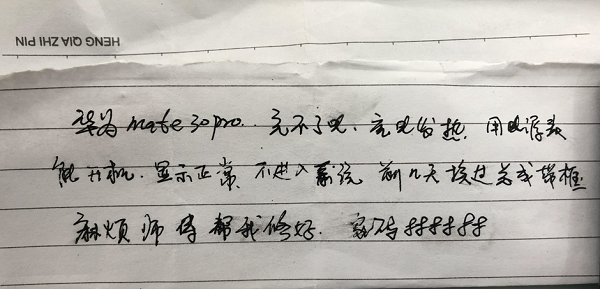 HENG QIA ZHI PIN
华为mate30pro. 充不了电. 充电发热. 用电源表
能开机. 显示正常. 不进入系统 前几天换过总成带框
麻烦师傅帮我修好. 密码######